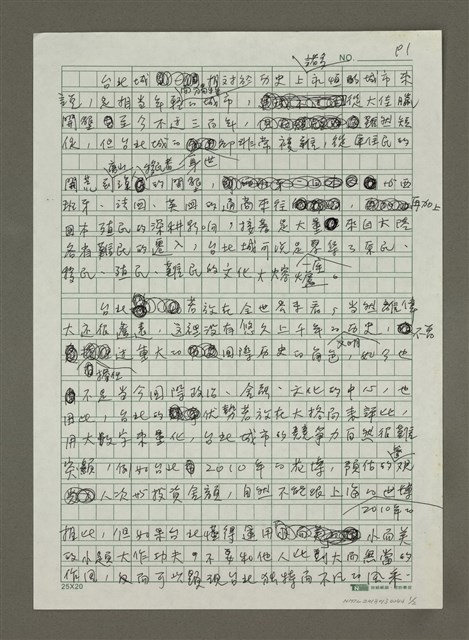 諸多
NO.
P1
台北城相對於歷史上永恆的城市來
說，是相當年輕的城市，從大佳臘
開墾至今不過三百年，雖然短
促，但台北城的身世卻非常複雜，從原住民的
唐山移民者的開墾，
班牙、法國、英國的通商來往，再加上
日本殖民的深耕影響，接著是大量來自大陸
各省難民的遷入，台北城可說是學等了原民、
移民、殖民、難民的文化大熔爐一座。
台北若放在全世界來看，當然離偉
大還很遙遠，這裡沒有悠久上千年的文明歷史，不曾
擔任過重大的國際歷史的角色，如今也
不是當今國際政治、金融、文化的中心，也
因此，台北的優勢若放在大格局來評比，
用大數字來量化，台北城市的競爭力自然很難
突顯，例如台北2010年的花博，預估的參觀
人次或投資金額，自然不能跟上海的世博
2010年的
相比，但如果台北懂得運用小而美
的小題大作功夫，不要和他人比劃大而無當的
作風，反而可以顯現台北獨特而不凡的風采。
25X20